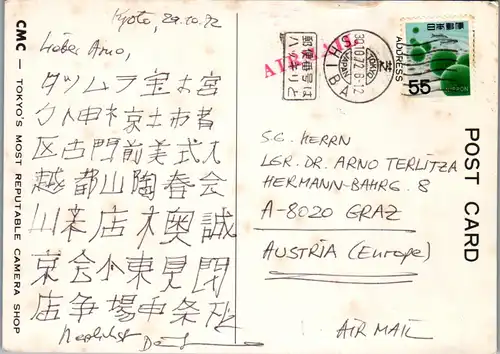 CMC — TOKYO'S MOST REPUTABLE CAMERA SHOP
Kyoto, 29.10.72
Lieber Arno,
タツムラ宝お宮
京土市者
区古門前美式入
越都山陶春会
川茶店木奥誠
京会小東見閉
店争場中条所
Herzlichst
AIR MAIL
郵便番号は
ハッキリと
TOKYO
JAPAN
30.10.72.8-12
CHIBA
日本郵便
NIPPON
55
ADDRESS
POST CARD
S.G. HERRN
LGR. DR. ARNO TERLITZA
HERMANN-BAHRG. 8
A-8020 GRAZ
AUSTRIA (Europe)
AIR MAIL